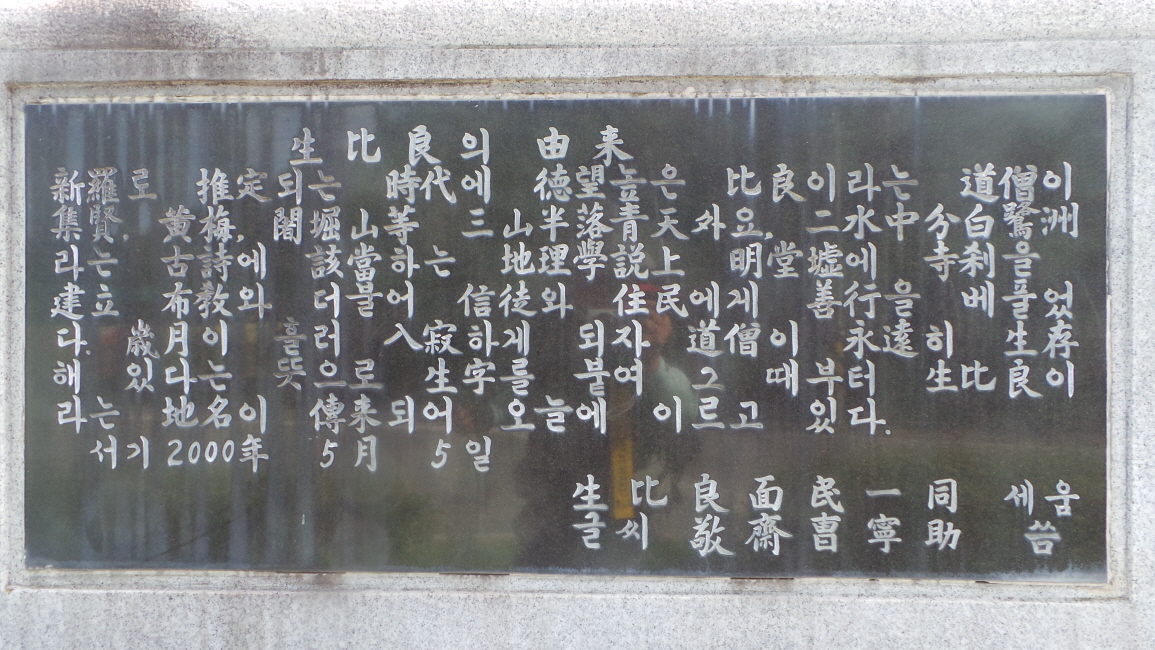 生比良의 由来
新羅로 推定되는 時代에 徳望높은 比良이라는 道僧이
集賢, 黄梅, 闍堀山等 三山半落青天外요, 二水中分白鷺洲
라는 古詩에 該當하는 地理學說上 明堂墟에 寺刹을
建立 布教와 더불어 信徒와 住民에게 善行을 베풀었
다. 歳月이 흘러 入寂하게 되자 道僧이 永遠히 生存
해 있다는 뜻으로 生字를 붙여 그때부터 生比良이
라는 地名이 傳来되어 오늘에 이르고 있다.
서기 2000年 5月 5일
生比良面民一同 세움
글씨 敬齋 曺寧助 씀